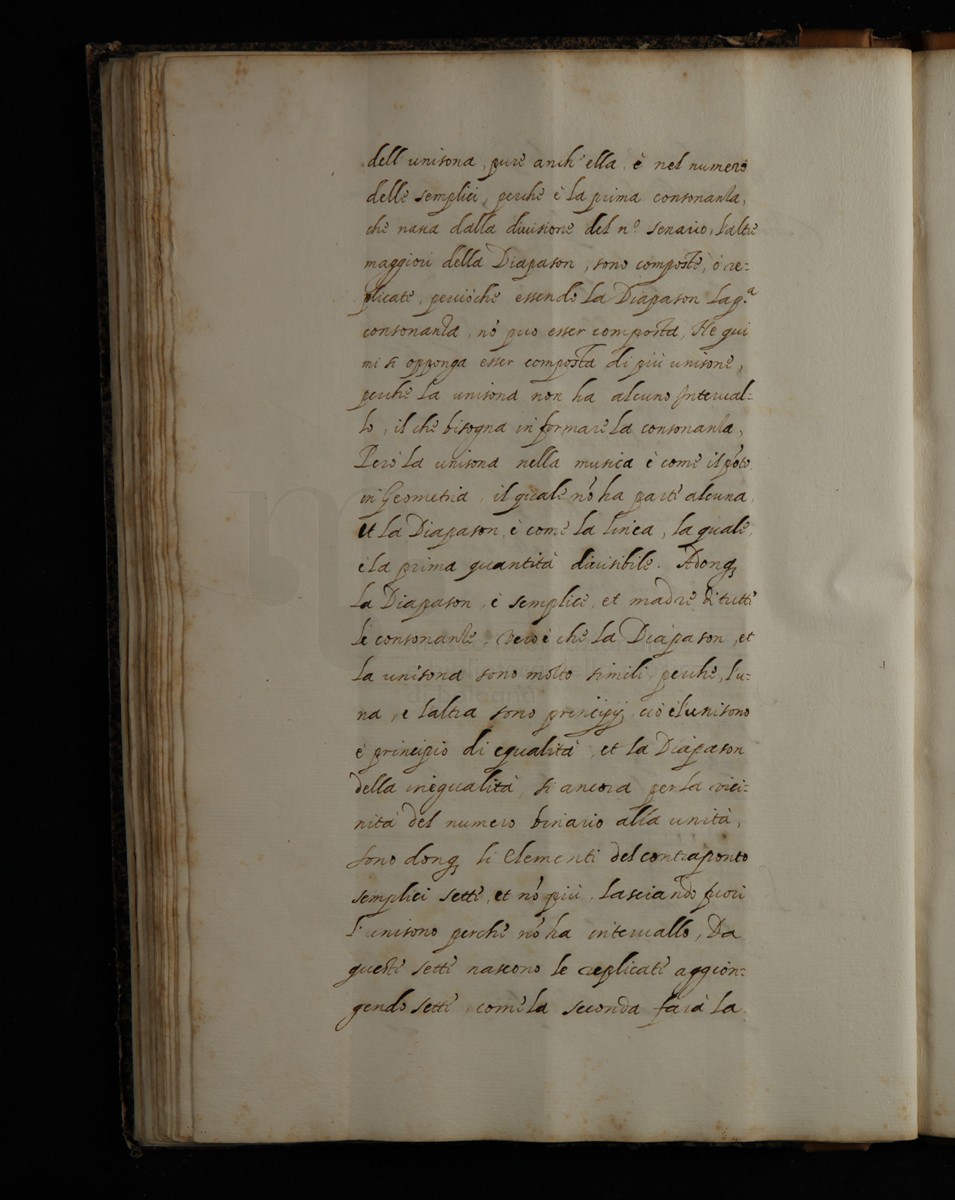 dell unisona, purè anch'ella, è nel numero
dellè semplici, perchè è la prima consonanza,
chè nasca dalla diuisionè del n.º senario, l'altrè
maggiori della Diapason, sono compostè, ò re=
plicatè, perciòchè essendo la Diapason la p.ª
consonanza, nõ puo esser composta, Ne qui
mi si opponga esser composta di più unisonè,
perchè la unisona non ha alcuno Interual=
lo, il chè bisogna in formarè la consonanza,
Però la unisona nella musica è comè il põto
in Geometria, il qualè nõ ha partè alcuna,
et la Diapason, è comè la linea, la qualè,
è la prima quantità diuisibilè. Adonq;
la Diapason, è semplicè, et madrè di tuttè
lè consonanzè, Vero è chè la Diapason, et
la unisona sono molto simili, perchè, l'u=
na, e l'altra sono principij, ciò è l'unisono
è principio di equalità, et la Diapason
della inequalità, si ancora per la vici=
nità del numero binario alla unità,
sono donq; li Elementi del contraponto
semplici settè, et nõ più, lasciando fuori
l'unisono perchè nõ ha interuallo, Da
questi settè nascono le replicatè aggion=
gendo settè, comè la seconda farà la